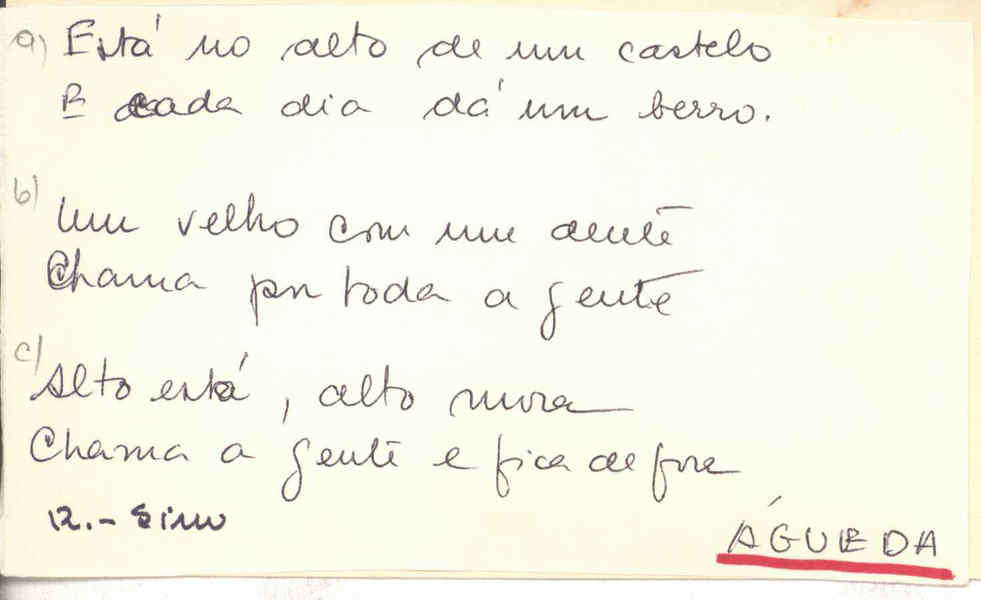 a) Está no alto de um castelo
E cada dia dá um berro.
b) Um velho com um dente
Chama por toda a gente
c) Alto está, alto mora
Chama a gente e fica de fora
R.- Sino
ÁGUEDA